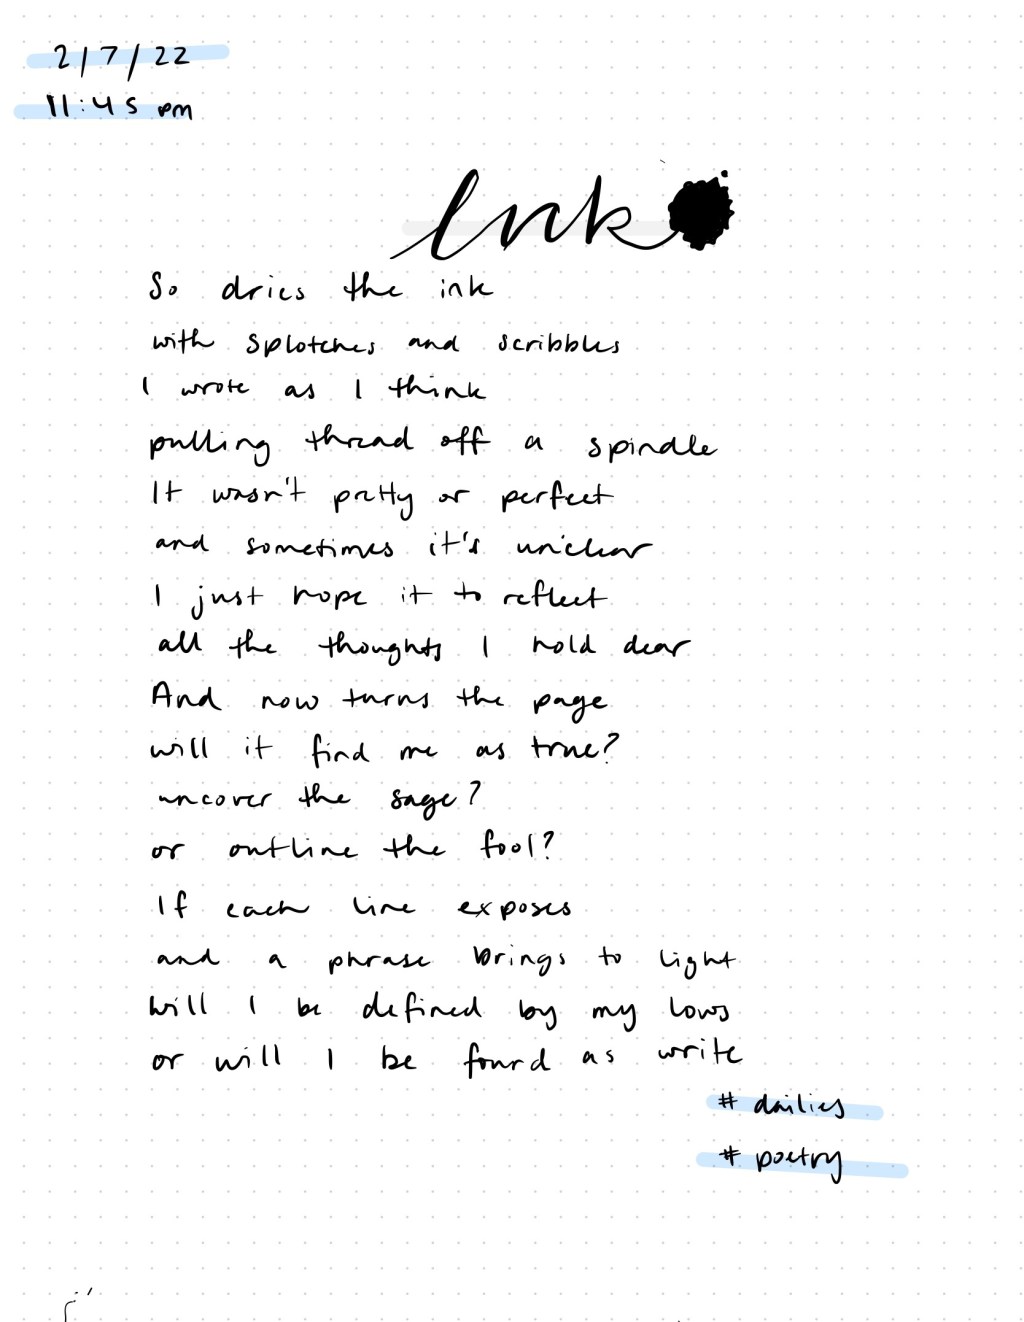 2/7/22
11:45 pm
Ink
So dries the ink
with splotches and scribbles
I wrote as I think
pulling thread off a spindle
It wasn't pretty or perfect
and sometimes it's unclear
I just hope it to reflect
all the thoughts I hold dear
And now turns the page
will it find me as true?
uncover the sage?
or outline the fool?
If each line exposes
and a phrase brings to light
will I be defined by my lows
or will I be found as write
# dailies
# poetry